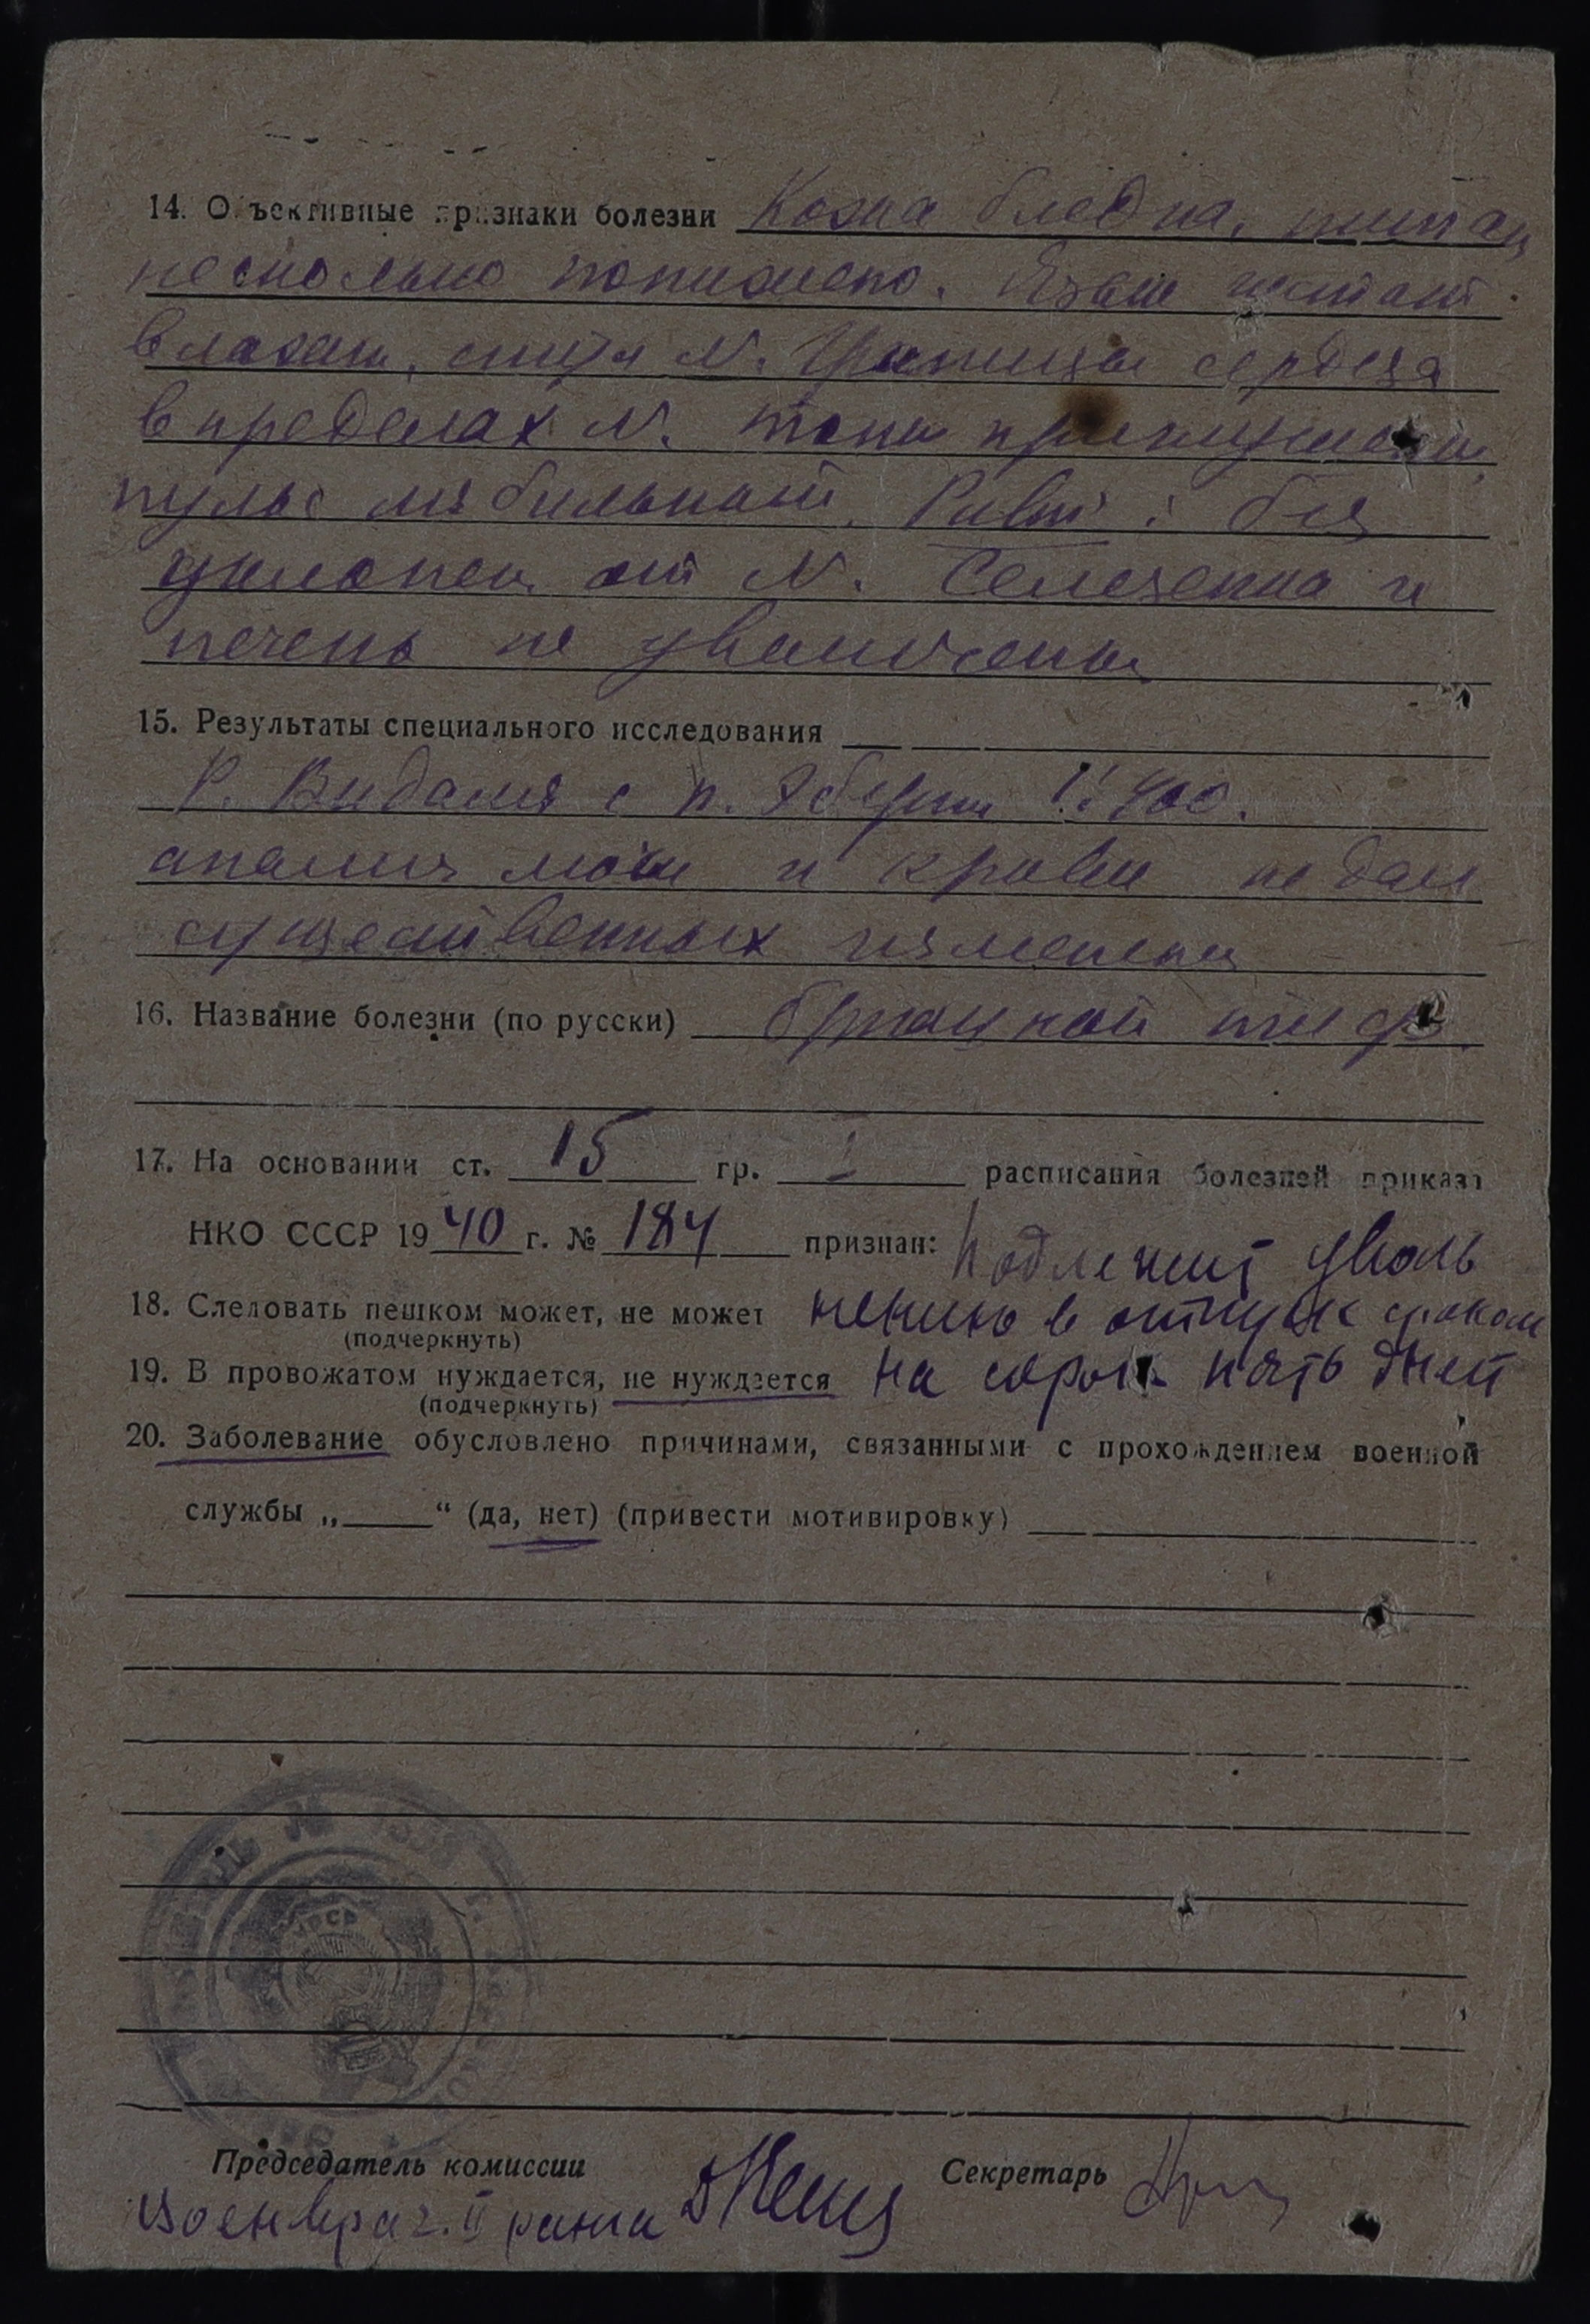 14. Объективные признаки болезни Кожа бледна, питан
несколько понижено. Язык чистый
влажен, стул N. Границы сердца
в пределах N. тоны приглушены
пульс лабильный. Живот: без
уклонен. от N. Селезенка и
печень не увеличены
15. Результаты специального исследования
Р. Видаля с п. Эберта 1:400.
анализ мочи и крови не дал
существенных изменен
16. Название болезни (по русски) брюшной тиф.
17. На основании ст. 15 гр. I расписания болезней приказа
НКО СССР 1940 г. № 184 признан: подлежит уволь
18. Следовать пешком может, не может нению в отпуск сроком
(подчеркнуть)
19. В провожатом нуждается, не нуждается на сорок пять дней
(подчеркнуть)
20. Заболевание обусловлено причинами, связанными с прохождением военной
службы „ “ (да, нет) (привести мотивировку)
Председатель комиссии Секретарь
Военврач. II ранга